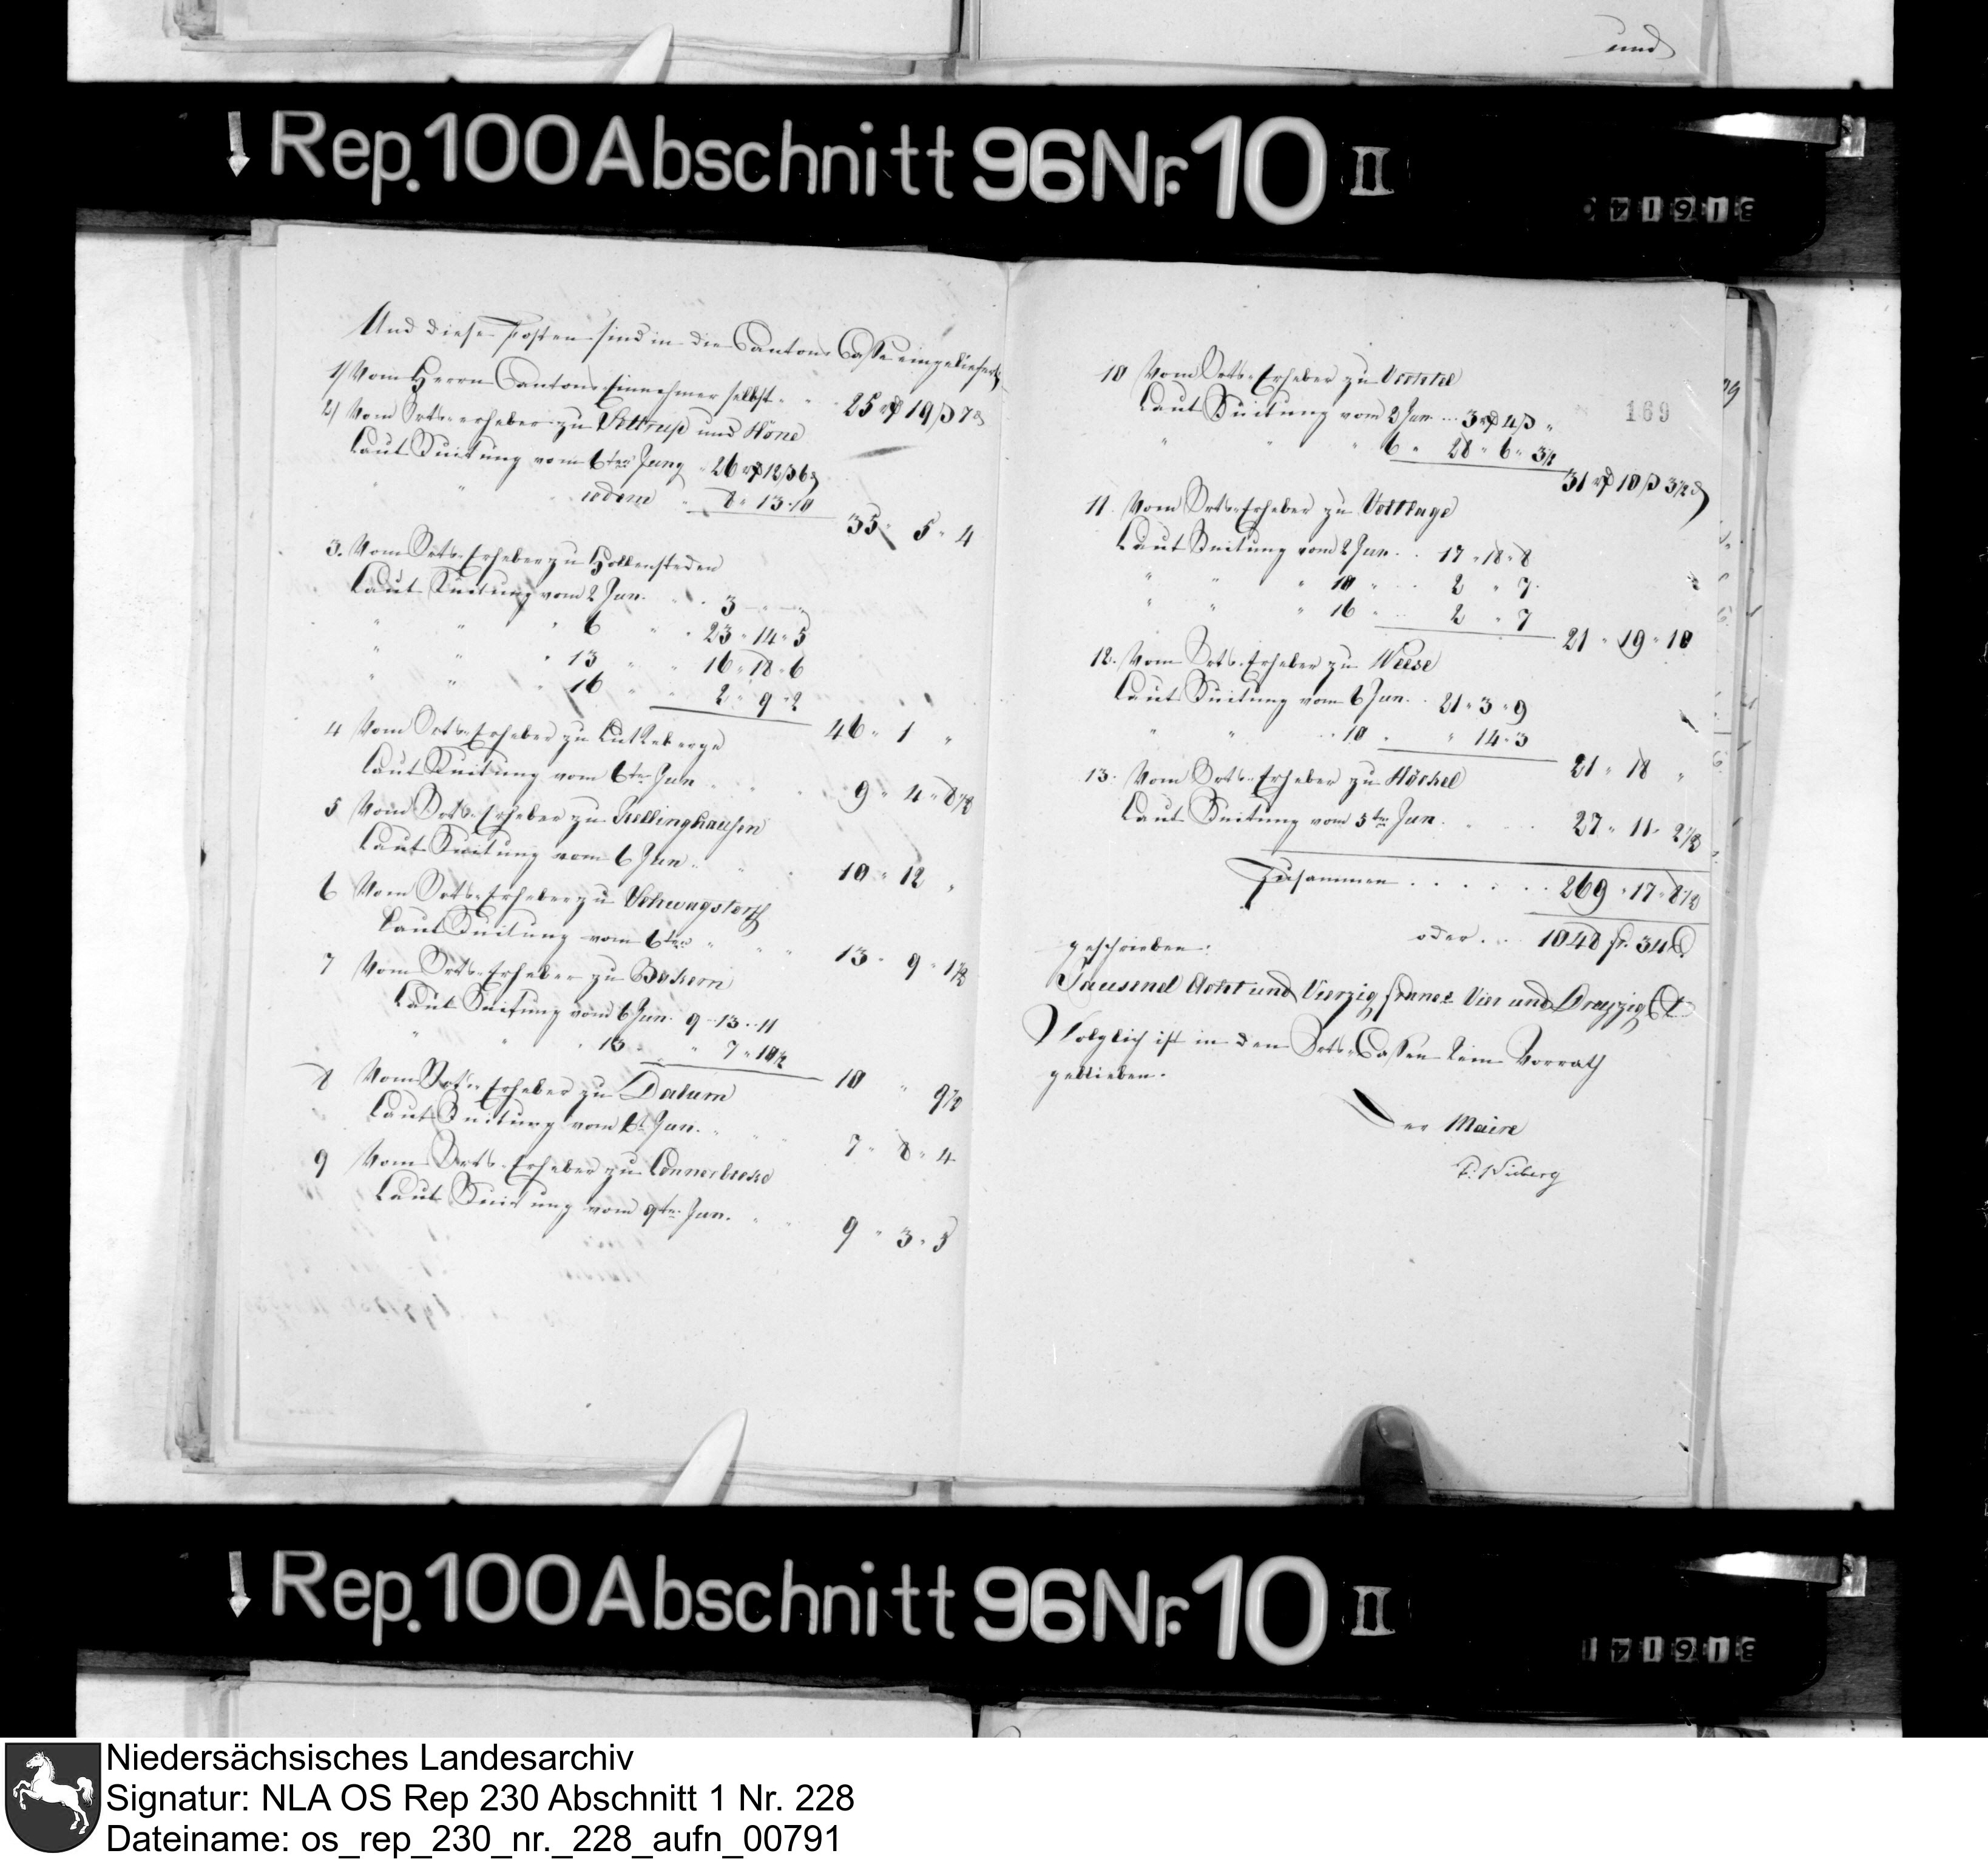 und
Rep. 100 Abschnitt 96 Nr. 10 II
Und diese Posten sind in die Cantons Casse eingeliefert,
1) Vom Herrn Cantons Einnehmer selbst . . . 25 rh 19 ß 7 d
2) Vom Orts-erheber zu Settrup und Höne
Laut Quitung vom 6ten Juny " 26 rh 12 ß 6 d
" " eodem " 8 " 13 " 10
35 " 5 " 4
3. Vom Orts-Erheber zu Hollensteden
Laut Quitung vom 2 Jun. . . 3 " — " —
" " " 6 " " 23 " 14 " 5
" " " 13 " " 16 " 18 " 6
" " " 16 " " 2 " 9 " 2
46 " 1 "
4 Vom Orts-Erheber zu Lutkeberge
Laut Quitung vom 6ten Jun . . . 9 " 4 " 8 1/2
5 Vom Orts-Erheber zu Kellinghausen
Laut Quitung vom 6 Jun . . 10 " 12 "
6 Vom Orts-Erheber zu Schwagstorf
Laut Quitung vom 6ten " " " 13 " 9 " 1 1/2
7 Vom Orts-Erheber zu Bokern
Laut Quitung vom 6 Jun. 9 " 13 " 11
" " " 13 " " 7 " 10 1/2
10 " 9 1/2
8 Vom Orts-Erheber zu Dalum
Laut Quitung vom 6t Jun. " " " 7 " 8 " 4
9 Vom Orts-Erheber zu Lonnerbecke
Laut Quitung vom 9ten Jun. " " 9 " 3 " 5
169
10 Vom Orts-Erheber zu Vechtel
Laut Quitung vom 2 Jun . . . 3 rh 4 ß "
" " " 6 " 28 " 6 " 3 1/2
31 rh 10 ß 3 1/2 d
11. Vom Orts-Erheber zu Voltlage
Laut Quitung vom 2 Jun . . 17 " 18 " 8
" " " 10 " . . 2 " 7
" " " 16 " . . 2 " 7
21 " 19 " 10
12. Vom Orts-Erheber zu Weese
Laut Quitung vom 6 Jun. . 21 " 3 " 9
" " " 10 " " 14 " 3
21 " 18 "
13. Vom Orts-Erheber zu Höckel
Laut Quitung vom 5ten Jun. . . . 27 " 11 " 2 1/2
Zusammen . . . . . . 269 " 17 " 8 1/2
oder . . . 1048 fr. 34 C
geschrieben:
Tausend Acht und Vierzig francs Vier und Dreyzig Ct
Folglich ist in den Orts-Cassen kein Vorrath
geblieben.
Der Maire
Rep. 100 Abschnitt 96 Nr. 10 II
Niedersächsisches Landesarchiv
Signatur: NLA OS Rep 230 Abschnitt 1 Nr. 228
Dateiname: os_rep_230_nr._228_aufn_00791